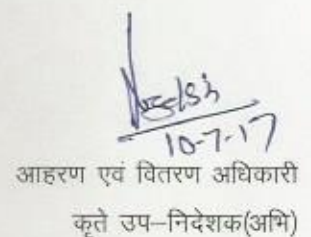 10-7-17
आहरण एवं वितरण अधिकारी
कृते उप–निदेशक(अभि)